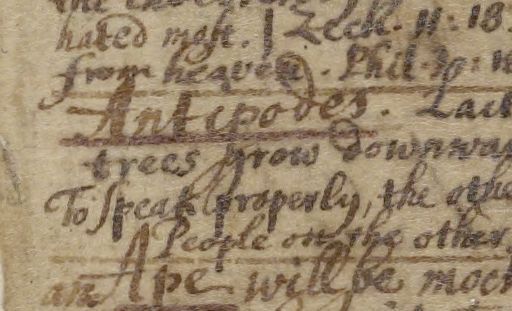 hated most. | Zech. 11. 18
from heaven. Phil. 3.
Antipodes. Lact
trees grow downwar
To speak properly, the othe
People on the other
an Ape will be mock